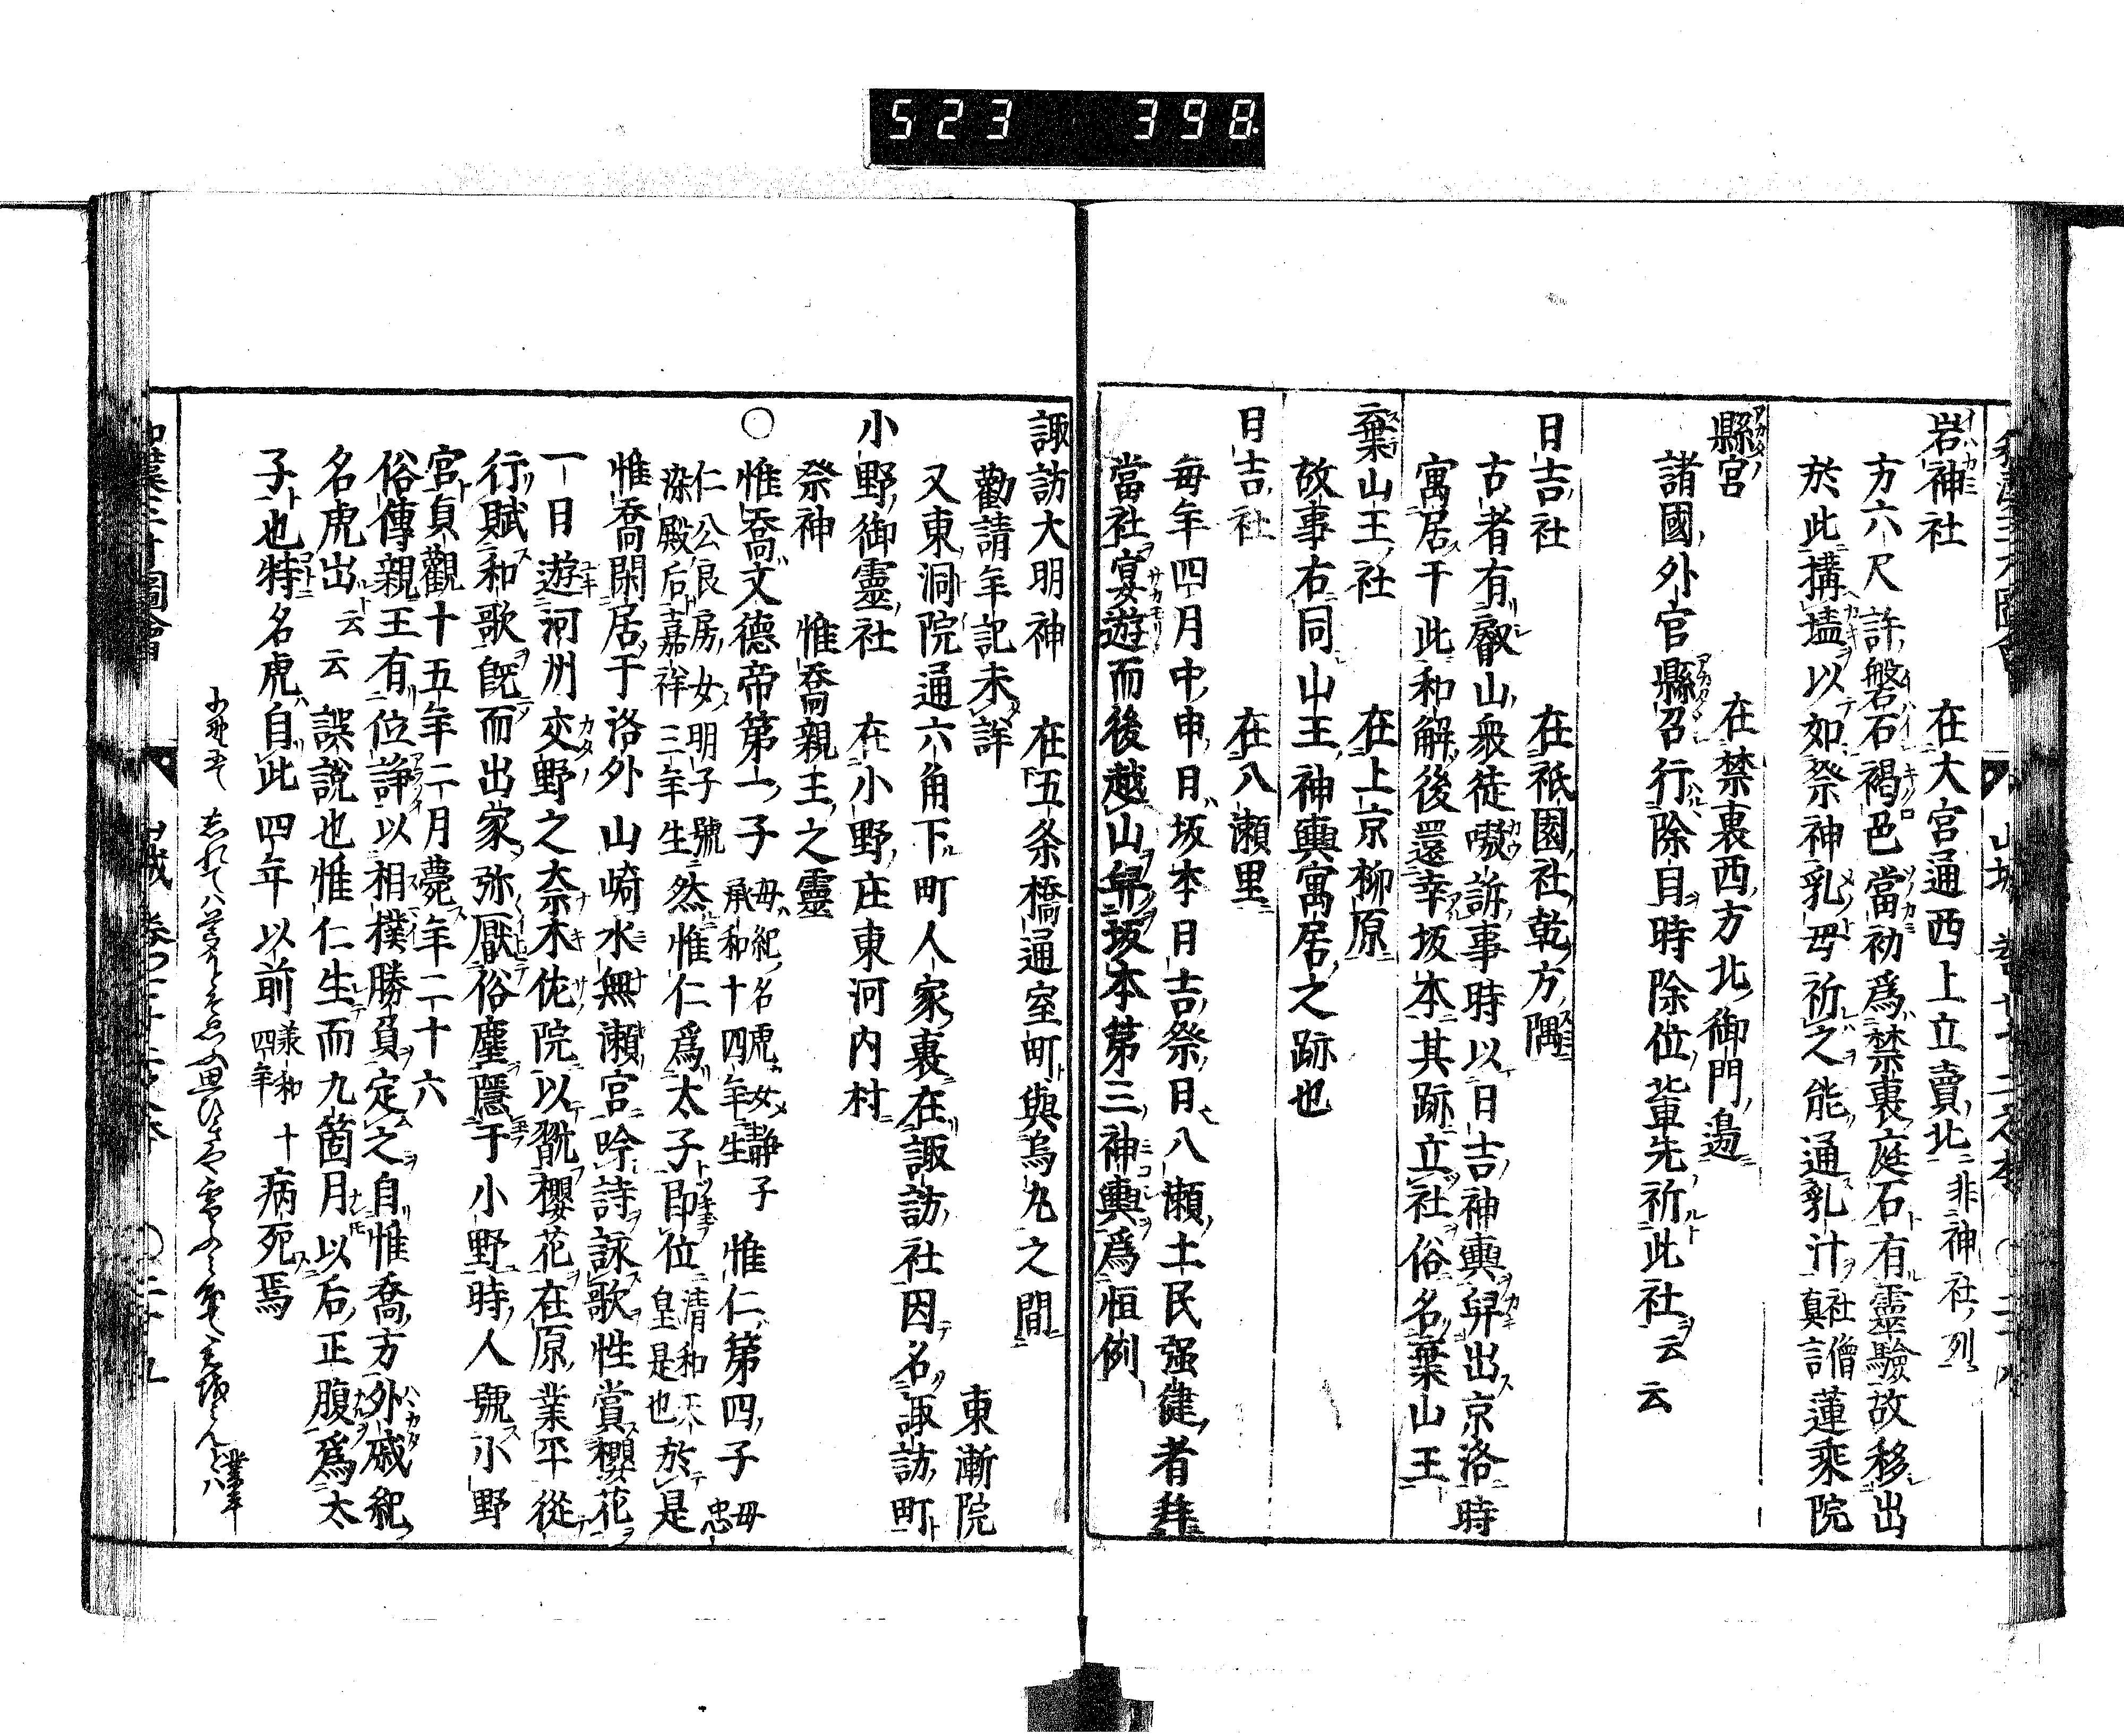 523 398
岩神社 在大宮通西上立賣北 非神社列
方六尺許磐石褐色當初爲禁裏庭石有靈驗故移出
於此搆壒以如祭神乳母祈之能通乳汁 社僧真言 蓮乘院
縣宮 在禁裏西方北御門邉
諸國外官縣召行除目時除位輩先祈此社云云
日吉社 在祇園社乾方隅
古者有叡山衆徒嗷訴事時以日吉神輿舁出京洛時
寓居于此和解後還幸坂本其跡立社俗名棄山王
棄山王社 在上京柳原
故事右同山王神輿寓居之跡也
日吉社 在八瀬里
毎年四月中申日坂本日吉祭日八瀬土民强健者拜
當社宴遊而後越山舁坂本第三神輿爲恒例
諏訪大明神 在五条橋通室町與烏丸之間
勸請年記未詳 東漸院
又東洞院通六角下町人家裏在諏訪社因名諏訪町
小野御靈社 在小野庄東河内村
祭神 惟喬親王之靈
〇惟喬文德帝第一子 母紀名虎女靜子 承和十四年生 惟仁第四子 母忠
仁公良房女明子號 染殿后嘉祥三年生 然惟仁爲太子即位 清和天 皇是也 於是
惟喬閑居于洛外山崎水無瀬宮吟詩詠歌性賞櫻花
一日遊河州交野之奈木佐院以翫櫻花在原業平從
行賦和歌既而出家弥厭俗塵隱于小野時人號小野
宮貞觀十五年二月薨年二十六
俗傳親王有位諍以相撲勝負定之自惟喬方外戚紀
名虎出云云 誤說也惟仁生而九箇月以后正腹爲太
子也特名虎自此四年以前 羕和四年 十病死焉
業平